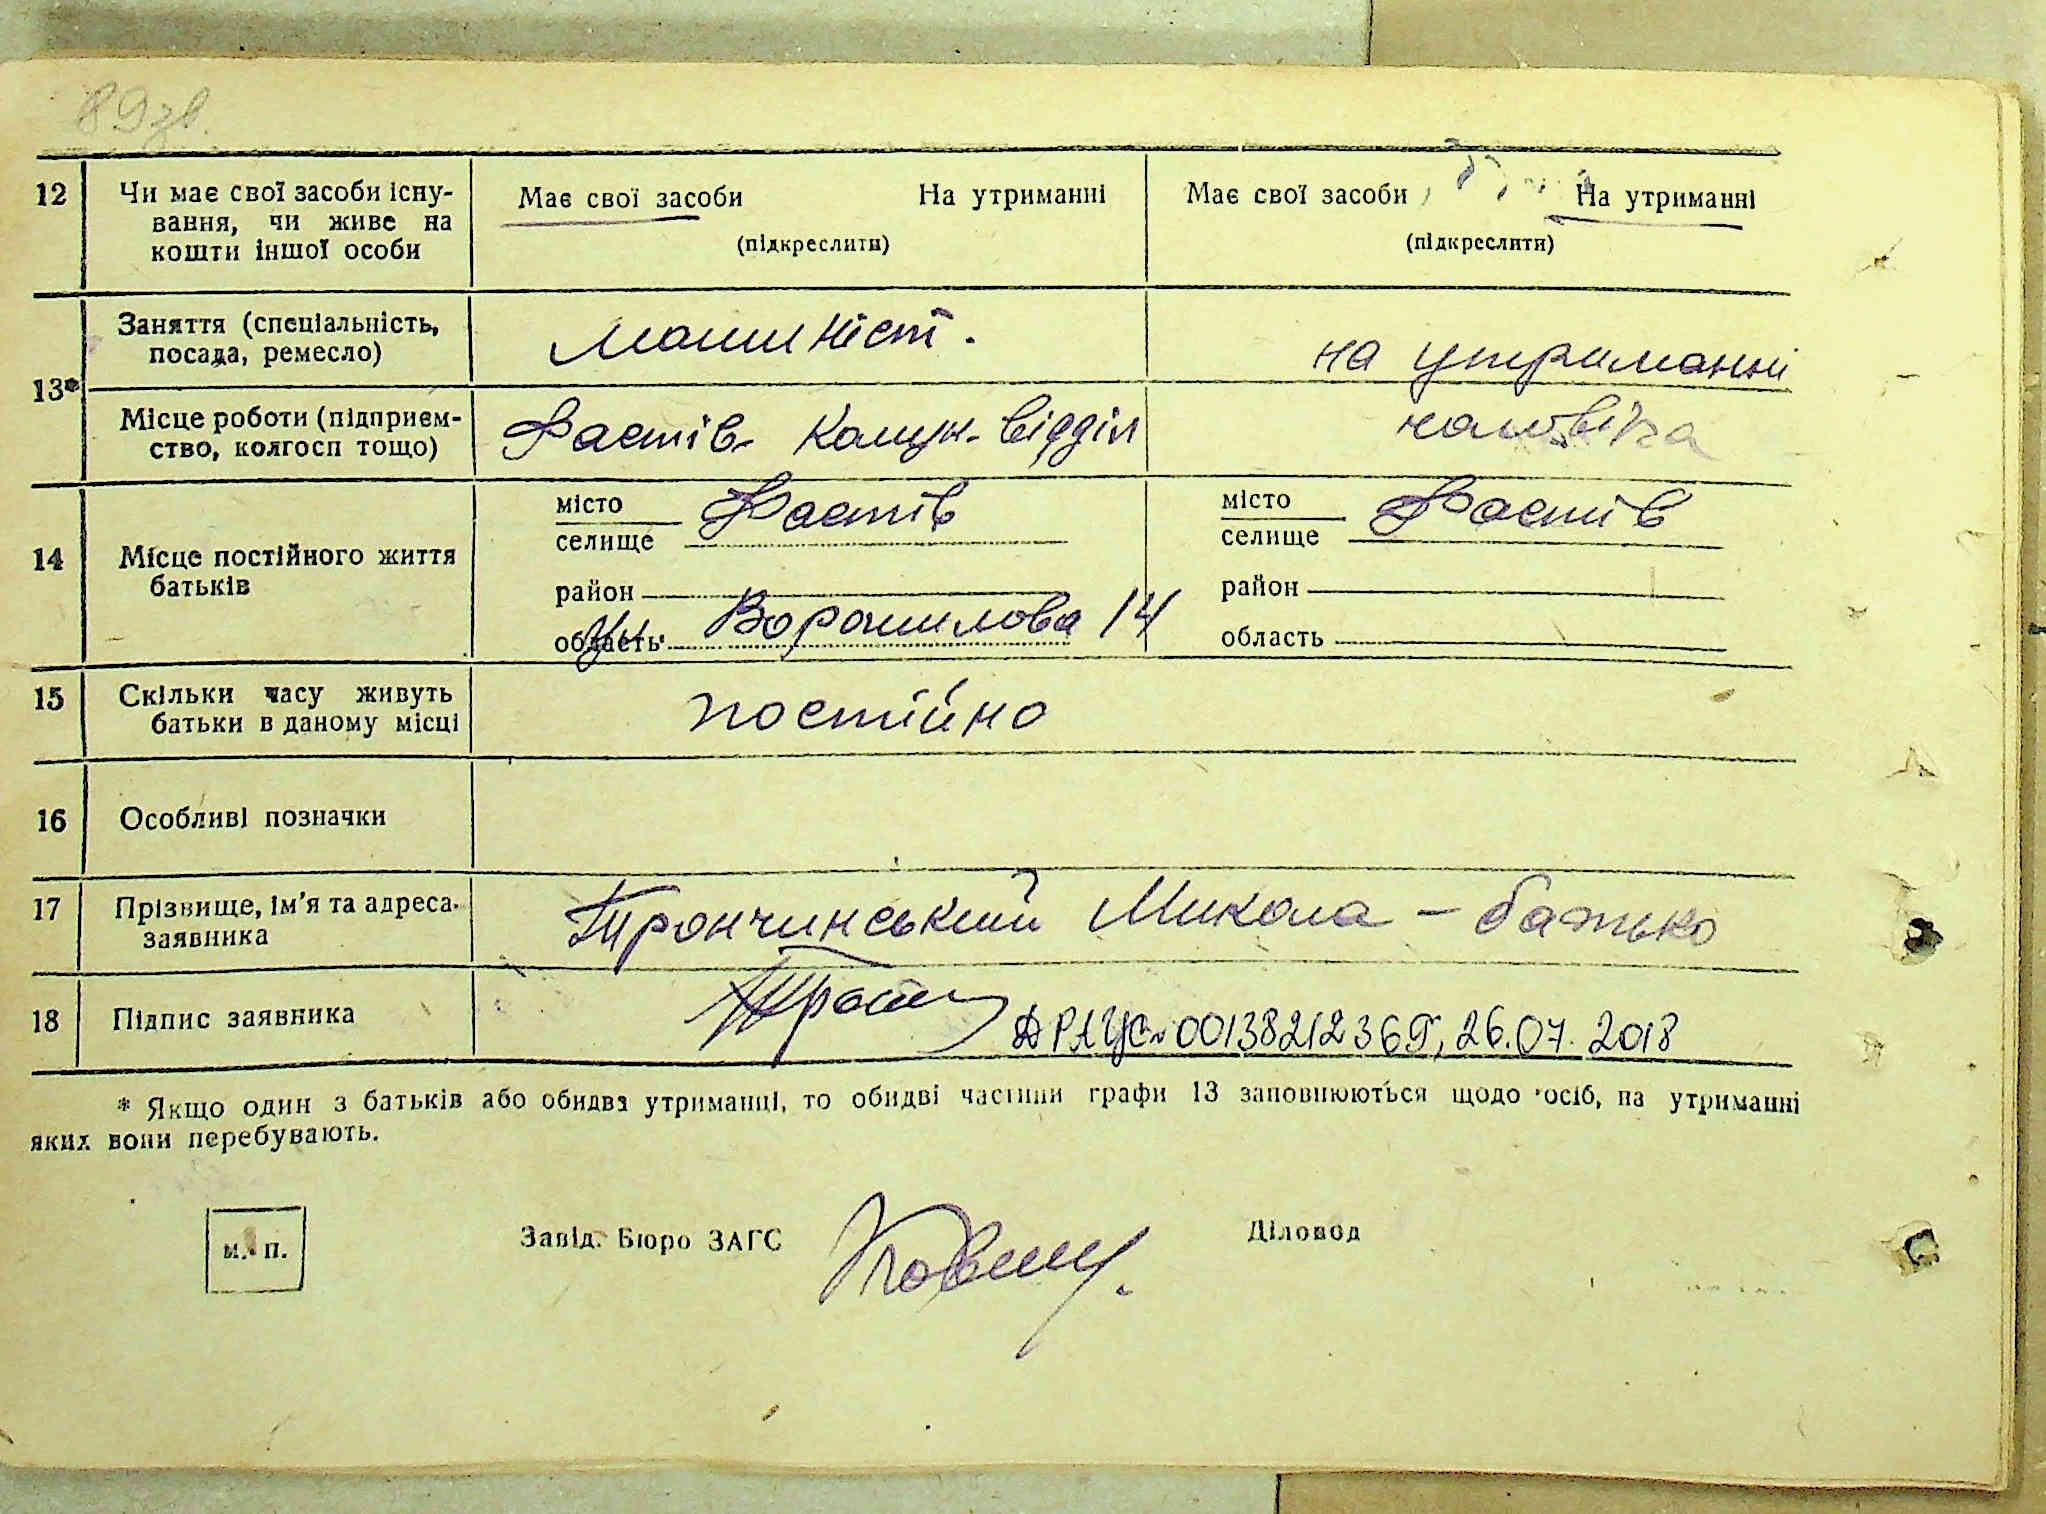 89зв.
12 Чи має свої засоби існу- Має свої засоби На утриманні Має свої засоби На утриманні
вання, чи живе на (підкреслити) (підкреслити)
кошти іншої особи
13* Заняття (спеціальність, машиніст. на утриманні
посада, ремесло)
Місце роботи (підприєм- Фастів. комун. відділ чоловіка
ство, колгосп тощо)
14 Місце постійного життя батьків
місто Фастів місто Фастів
селище селище
район район
область ул. Ворошилова 14 область
15 Скільки часу живуть постійно
батьки в даному місці
16 Особливі позначки
17 Прізвище, ім'я та адреса Трончинський Микола – батько
заявника
18 Підпис заявника ДРАЦС 00138212369, 26.07.2018
* Якщо один з батьків або обидва утриманці, то обидві частини графи 13 заповнюються щодо осіб, на утриманні
яких вони перебувають.
м. п. Завід. Бюро ЗАГС Діловод